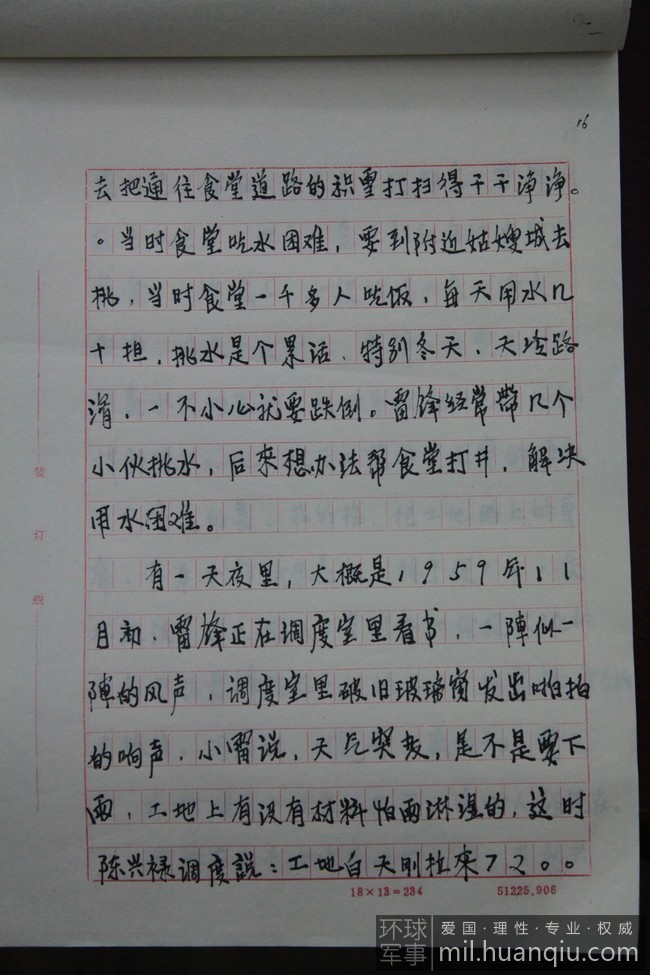 16
去把通往食堂道路的积雪打扫得干干净净。
。当时食堂吃水困难，要到附近姑嫂城去
挑，当时食堂一千多人吃饭，每天用水几
十担，挑水是个累活，特别冬天，天冷路
滑，一不小心就要跌倒。雷锋经常带几个
小伙挑水，后来想办法帮食堂打井，解决
用水困难。
有一天夜里，大概是1959年11
月初，雷锋正在调度室里看书，一阵似一
阵的风声，调度室里破旧玻璃窗发出啪拍
的响声，小雷说，天气突变，是不是要下
雨，工地上有没有材料怕雨淋湿的，这时
陈兴禄调度說：工地白天刚拉来7200
装
订
线
18×13=234
51225.906
环球
军事
爱国·理性·专业·权威
mil.huanqiu.com